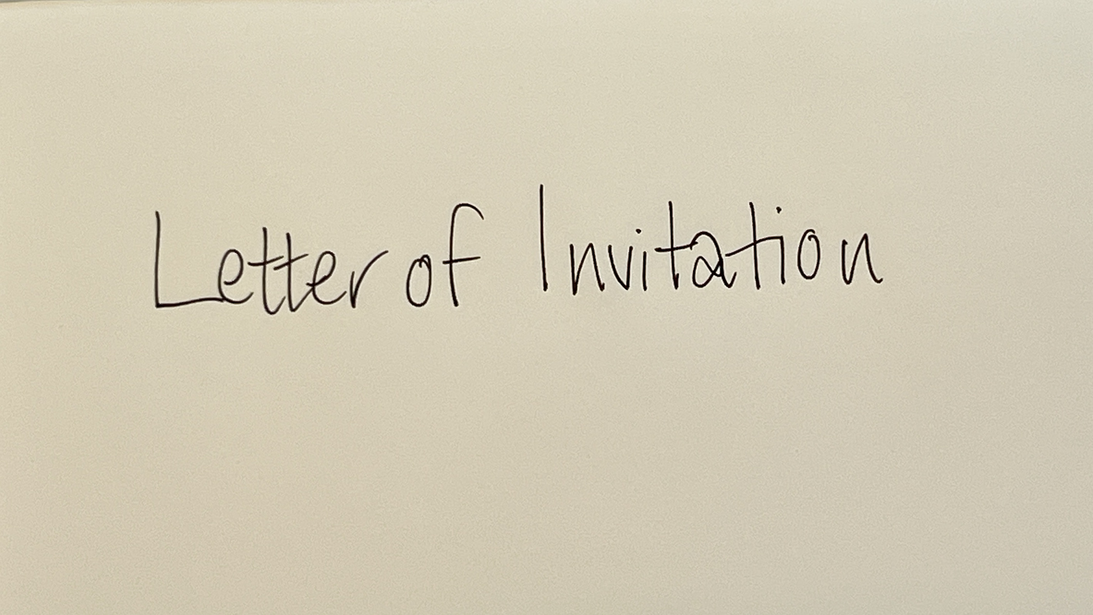 Letter of Invitation